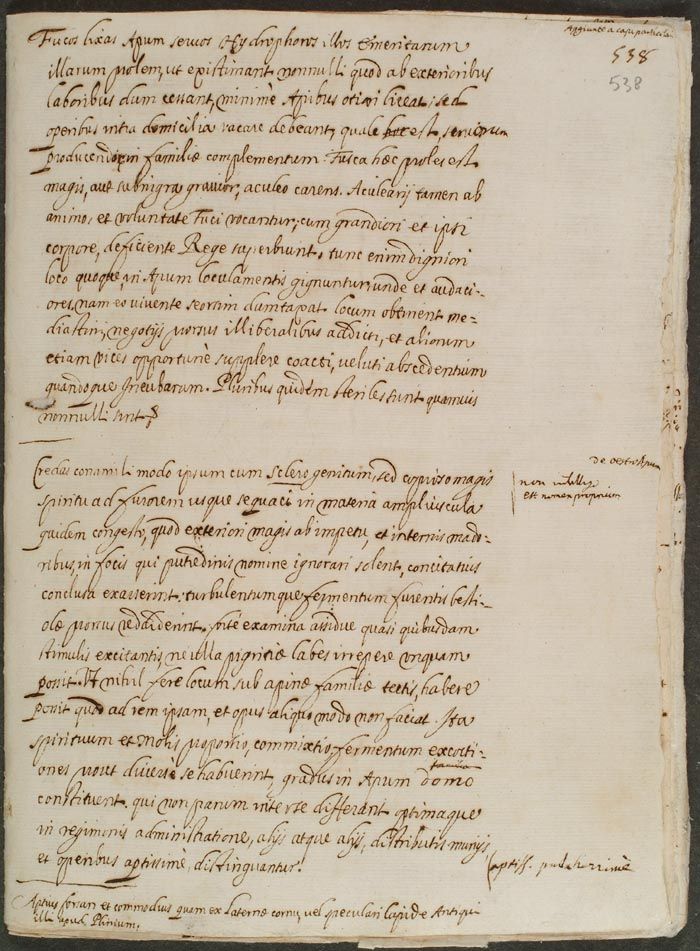 Aggiunte a capi particolar
538
538
Fucos lixas Apum servos Hydrophoros illos Emeritarum
illarum prolem, ut existimant nonnulli quod ab exterioribus
laboribus dum cessant, minimè Apibus otiari liceat; sed
operibus intra domicilia vacare debeant, quale est, servorum
producendorum in familiae complementum. Fusca haec proles est
magis, aut subnigra gravior, aculeo carens. Aculearij tamen ab
animo, et voluntate Fuci vocantur, cum grandiori et ipsi
corpore, deficiente Rege superbiunt. tunc enim digniori
loco quoque, in Apum loculamentis gignuntur, unde et audaci-
ores, nam eo vivente seorsim locum obtinent me-
diastini, negotijs prorsus illiberalibus addicti, et aliorum
etiam vices opportunè supplere coacti, veluti abscedentium
quandoque Incubarum. Pluribus quidem steriles sunt quamvis
nonnulli sint
de oestro Apum
Credas conamili modo ipsum cum sclero genitum, sed copioso magis
non intellig
spiritu ad furorem usque sequaci in materia ampliuscula
est nomen proprium
quidem congesto, quod exteriori magis ab impetu, et internis mado-
ribus, in focis qui putredinis nomine ignorari solent, concitatius
conclusa exarserint: turbulentumque fermentum furentis besti-
olae prorsus reddiderint. forte examina assidue quasi quibusdam
stimulis excitantis, ne ulla pigritiae labes irrepere unquam
possit. Ut nihil fere locum sub apinae familiae tectis, habere
possit quod ad rem ipsam, et opus aliquo modo non faciat. Ita
spirituum et molis proportio, commixtio, fermentum excocti-
ones prout diverse se habuerint, gradus in Apum domo
familia
constituent. qui non parum inter se differant optimaque
in regiminis administratione, alijs atque alijs, distributis munijs,
et operibus aptissime, distinguantur.
aptiss. pulcherrimè
Aptius forsan et commodius quam ex Laternae cornu, vel speculari lapide Antiqui
illi apud Plinium.